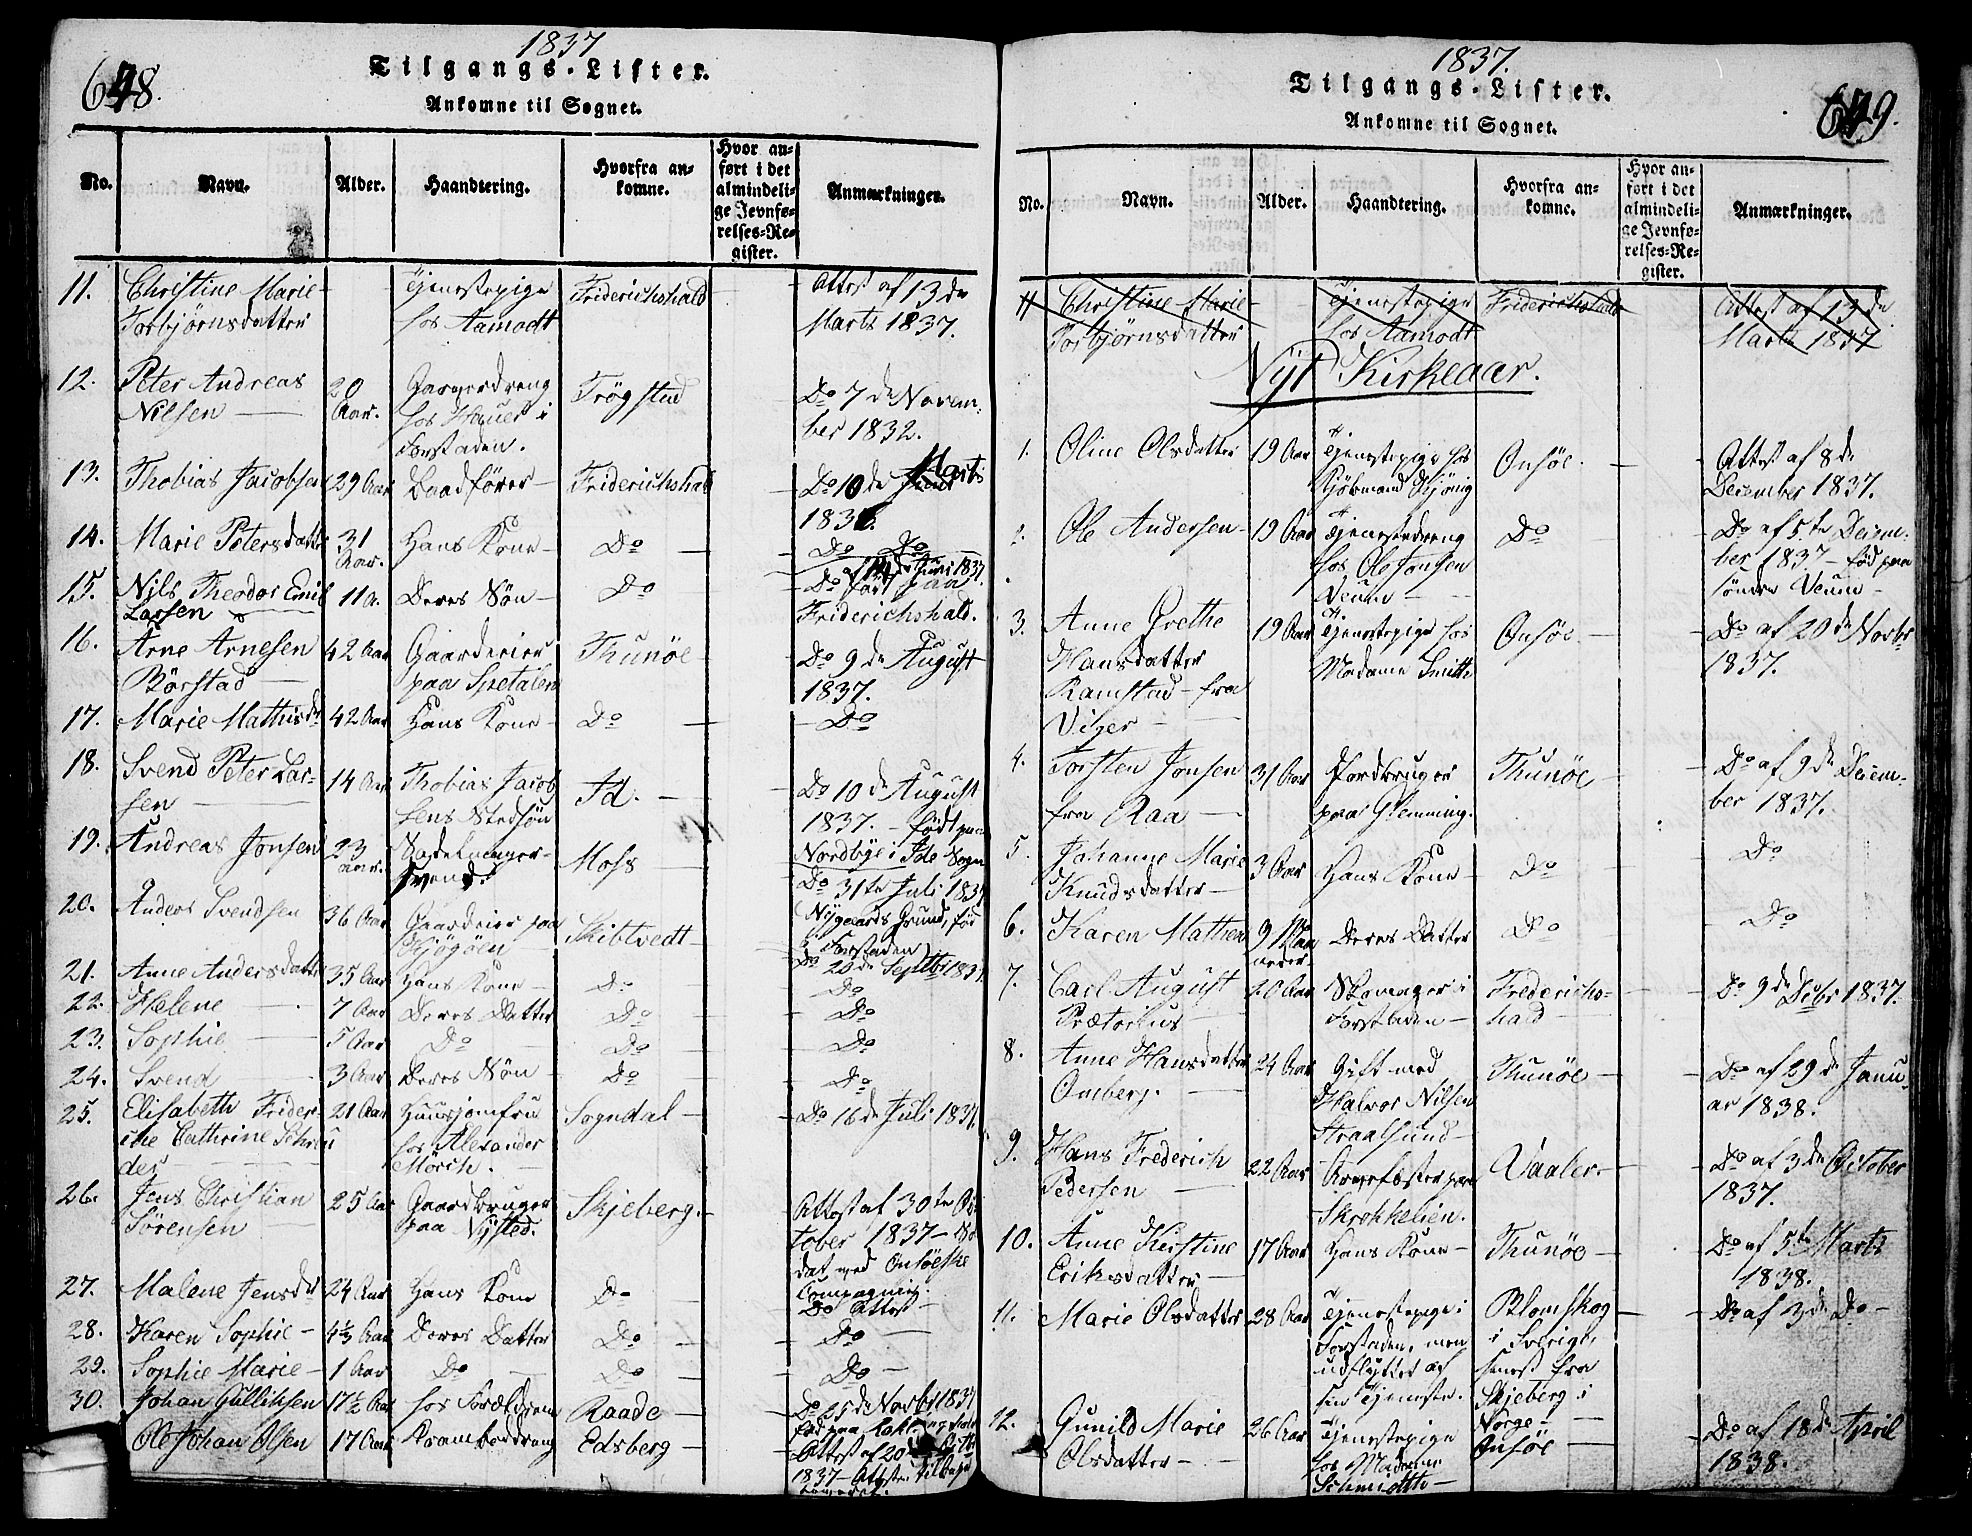 1837
Tilgangs-Lister.
Ankomne til Sognet.
No. Navn. Alder. Haandtering. Hvorfra ankomne. Hvor anført i det almindelige Jevnførelses-Register. Anmærkninger.
11. Christine Marie Torbjørnsdatter Tjenestepige hos Aamodt Friderichshald Attest af 13de Marts 1837.
12. Peter Andreas Nilsen 20 Aar. Garverdreng hos Hauer i Forstaden. Trögstad Do 7de November 1832.
13. Thobias Jacobsen 29 Aar Baadförer Friderichshald Do 10de Marts
14. Marie Petersdatter 31 Aar. Hans Kone Do Do Do
15. Nils Theodor Emil Larsen 11 A. Deres Sön Do Do Friderichshald.
16. Arne Arnesen Börstad 42 Aar Gaardeier paa Spetalen Thunöe Do 9de August 1837.
17. Marie Mathisdr 42 Aar Hans Kone Do Do
18. Svend Peter Larsen 14 Aar Thobias Jacobsens Stedsön Id. Do 10de August 1837. født paa Nordbye i Ide Sogn
19. Andreas Jonsen 23 Aar. Sadelmagersvend. Moss Do 31te Juli 1837
20. Anders Svendsen 36 Aar Gaardeier paa Skibtvedt Nygaards Grund, fød i Forstaden Do 20de Septbr 1837.
21. Anne Andersdatter 35 Aar Hans Kone Do Do
22. Helene 7 Aar Deres Datter Do Do
23. Sophie 5 Aar Do Do Do
24. Svend 3 Aar Deres Sön Do Do
25. Elisabeth Friderike Cathrine Schröder 21 Aar Huusjomfru hos Alexander Mörch. Sogndal Do 16de Juli 1837.
26. Jens Christian Sörensen 25 Aar Gaardbruger paa Nysted. Skjeberg. Attest af 30te October 1837 Soldat ved Onsöeske Compagnie.
27. Malene Jensdr 24 Aar Hans Kone Do Do Attest
28. Karen Sophie 4½ Aar Deres Datter Do Do
29. Sophie Marie 1 Aar Do Do Do
30. Johan Gulliksen 17½ Aar hos Forældrene Raade Do 25de Novbr 1837
Ole Johan Olsen 17 Aar Kramboddreng Edsberg Attest af 20de 1837
1837.
Tilgangs-Lister.
Ankomne til Sognet.
No. Navn. Alder. Haandtering. Hvorfra ankomne. Hvor anført i det almindelige Jevnførelses-Register. Anmærkninger.
11 Christine Marie Torbjørnsdatter Tjenestepige hos Aamodt Friderichshald Attest af 13de Marts 1837
Nyt Kirkeaar.
1. Oline Olsdatter 19 Aar Tjenestepige hos Onsöe. Attest af 8de December 1837.
2. Ole Andersen 19 Aar Tjenestedreng hos Ole Jonsen Veum Do Do af 5te December 1837 fød paa söndre Veum
3. Anne Grethe Hansdatter Ramstad fra Viger 19 Aar Tjenestepige hos Madame Smitte Onsöe Do af 20de Novbr 1837.
4. Torsten Jonsen fra Raa 31 Aar Jordbruger paa Glemming. Thunöe Do af 9de December 1837.
5. Johanne Marie Knudsdatter 3 Aar Hans Kone Do Do
6. Karen Mathea 9 Maaneder Deres Datter Do Do
7. Carl August Prætorius 20 Aar Skomager i Forstaden Frederichshald Do 9de Debr 1837.
8. Anne Hansdatter Omberg. 24 Aar Gift med Halvor Nilsen Straalsund Thunöe Do af 29de Januar 1838.
9. Hans Frederich Pedersen 22 Aar paa Skrokkelien. Vaaler. Do af 3de October 1837.
10. Anne Kirstine Eriksdatter 17 Aar Hans Kone Thunöe Do af 5te Marts 1838.
11. Marie Olsdatter 28 Aar Tjenestepige i Forstaden, men udflyttet af sin Tjeneste. Blomskog i Sverige, senest fra Skjeberg i Norge Do af 3de Do
12. Gunild Marie Olsdatter 26 Aar Tjenestepige hos Madame Schmidtte Onsöe Do af 18de April 1838.